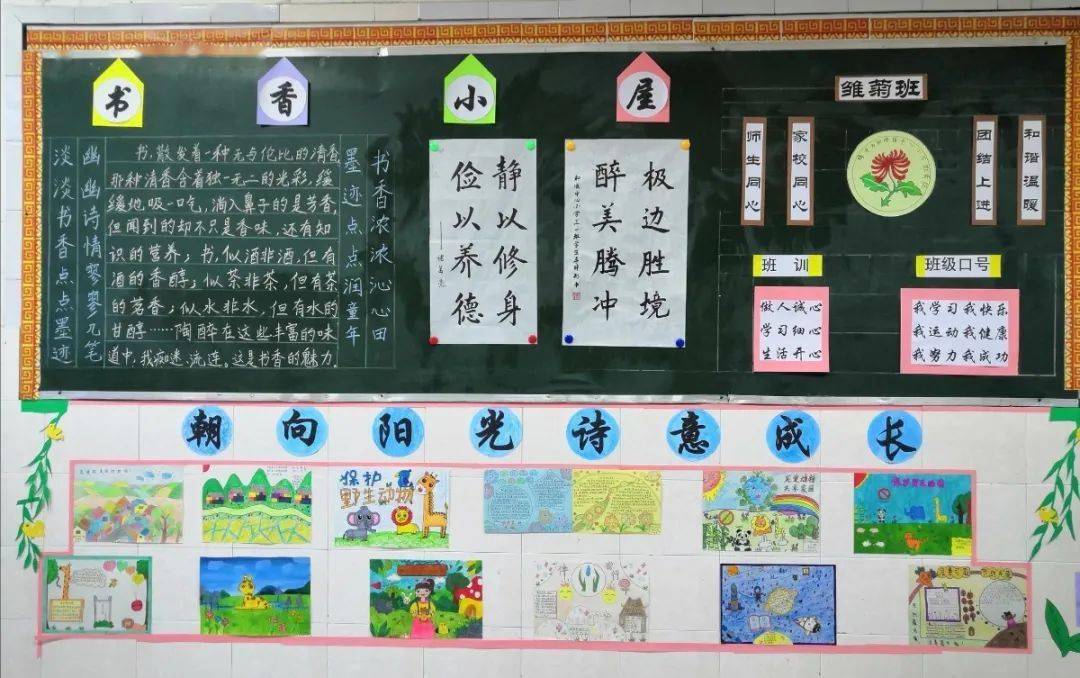 书香小屋
淡淡书香点点墨迹
幽幽诗情寥寥几笔
书，散发着一种无与伦比的清香，
那种清香含着独一无二的光彩。缓
缓地，吸一口气，淌入鼻子的是芳香，
但闻到的却不只是香味，还有知
识的营养；书，似酒非酒，但有
酒的香醇；似茶非茶，但有茶
的茗香；似水非水，但有水的
甘醇……陶醉在这些丰富的味
道中，我痴迷、流连。这是书香的魅力。
书香浓浓沁心田
墨迹点点润童年
静以修身
俭以养德
——诸葛亮
极边胜境
醉美腾冲
雏菊班
师生同心
家校同心
团结上进
和谐温暖
班训
做人诚心
学习细心
生活开心
班级口号
我学习我快乐
我运动我健康
我努力我成功
朝向阳光诗意成长
保护
野生动物